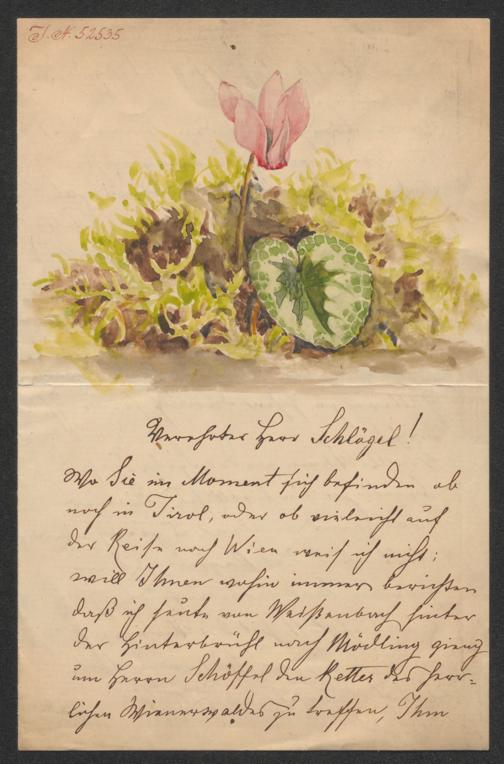 I. N. 52535
Verehrter Herr Schlögel!
Wo Sie im Moment sich befinden ob
noch in Tirol, oder ob vieleicht auf
der Reise nach Wien weis ich nicht;
will Ihnen wohin immer berichten
daß ich heute von Weißenbach hinter
der Hinterbrühl nach Mödling gieng
um Herrn Schöffel den Retter des herr-
lichen Wienerwaldes zu treffen, Ihm